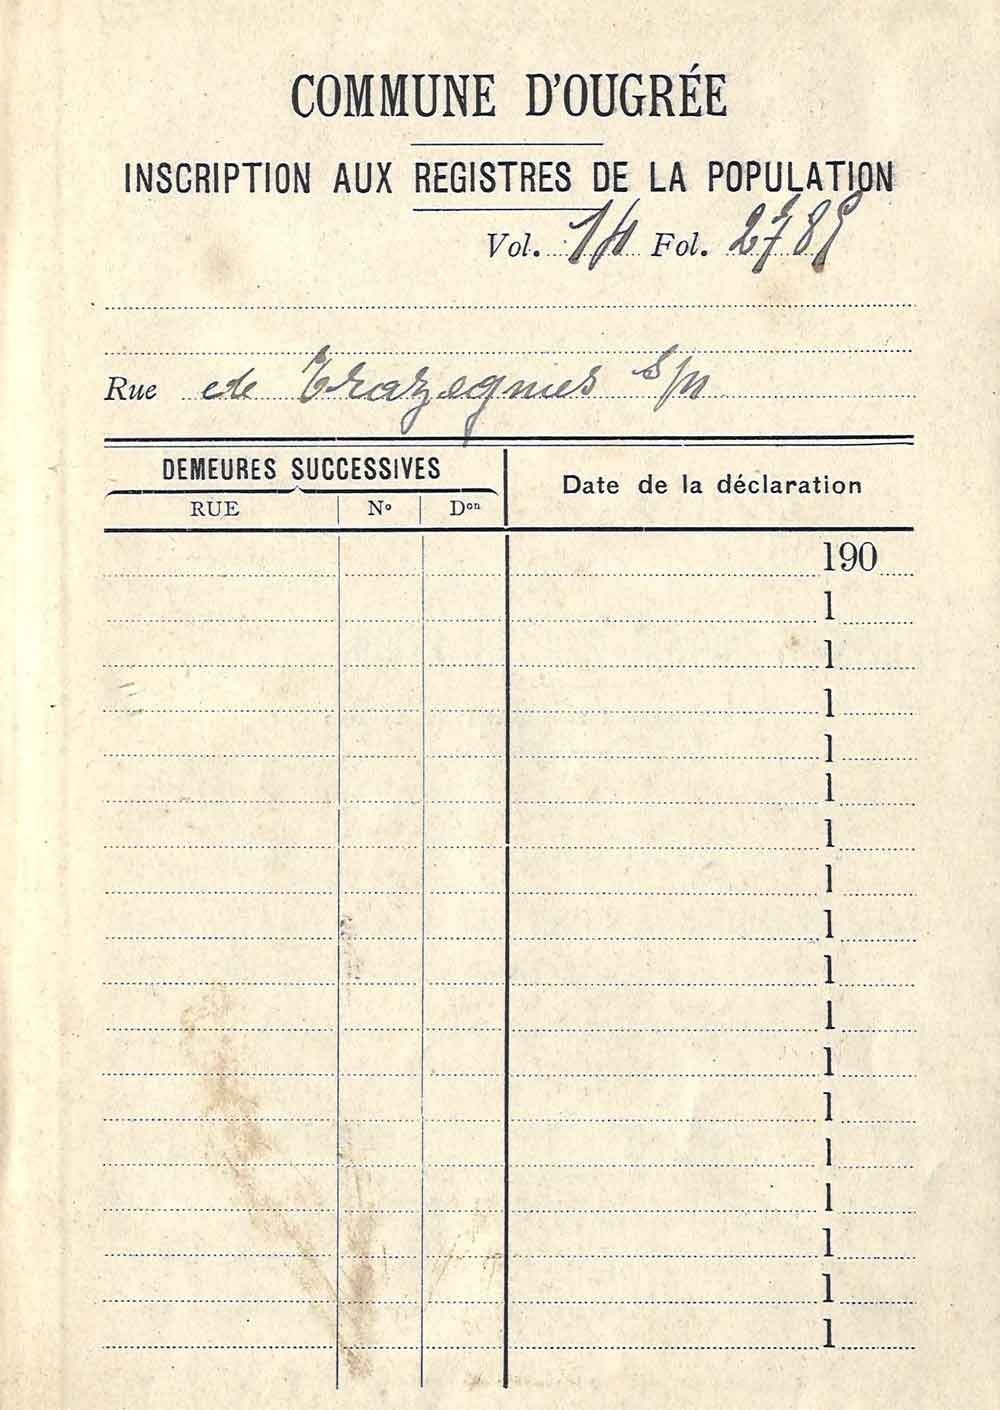 COMMUNE D'OUGRÉE
INSCRIPTION AUX REGISTRES DE LA POPULATION
Vol. 14 Fol. 2789
Rue de Trazegnies s/n
DEMEURES SUCCESSIVES
Date de la déclaration
RUE Nº Dᵒⁿ
190
1
1
1
1
1
1
1
1
1
1
1
1
1
1
1
1
1